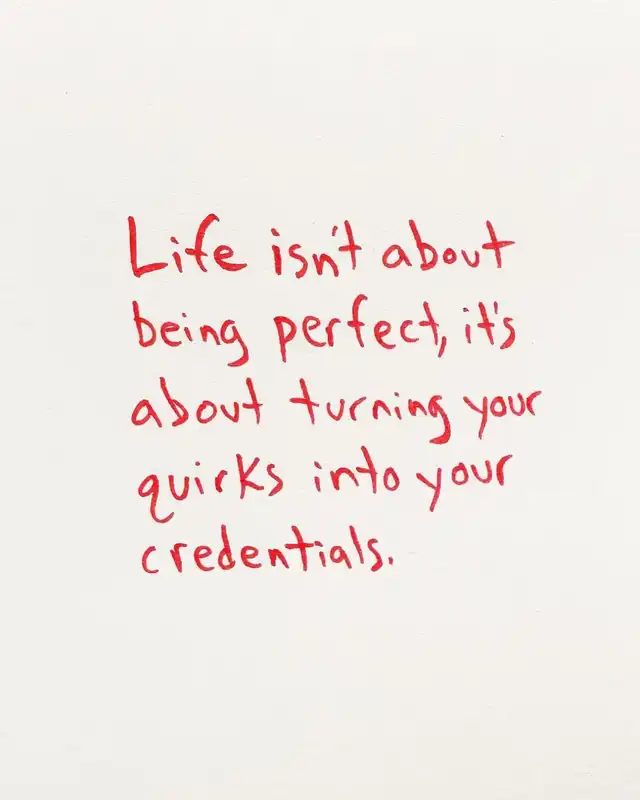 Life isn't about
being perfect, it's
about turning your
quirks into your
credentials.